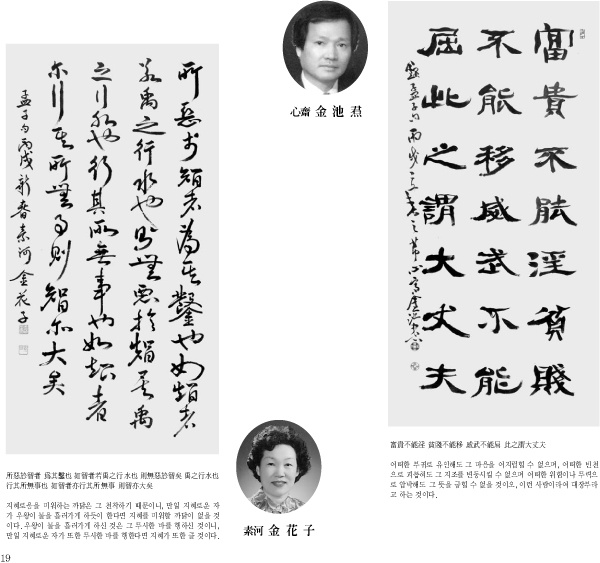 所惡於智者為其鑿也如智者
若禹之行水也則無惡於智矣禹
之行水也行其所無事也如智者
亦行其所無事則智亦大矣
孟子句丙戌新春素河金花子
所惡於智者 爲其鑿也 如智者若禹之行水也 則無惡於智矣 禹之行水也
行其所無事也 如智者亦行其所無事 則智亦大矣
지혜로움을 미워하는 까닭은 그 천착하기 때문이니, 만일 지혜로운 자
가 우왕이 물을 흘러가게 하듯이 한다면 지혜를 미워할 까닭이 없을 것
이다. 우왕이 물을 흘러가게 하신 것은 그 무사한 바를 행하신 것이니,
만일 지혜로운 자가 또한 무사한 바를 행한다면 지혜가 또한 클 것이다.
心齋 金池焄
素河 金花子
富貴不能淫貧賤
不能移威武不能
屈此之謂大丈夫
錄孟子句丙戌
富貴不能淫 貧賤不能移 威武不能屈 此之謂大丈夫
어떠한 부귀로 유인해도 그 마음을 어지럽힐 수 없으며, 어떠한 빈천
으로 괴롭혀도 그 지조를 변동시킬 수 없으며 어떠한 위협이나 무력으
로 압박해도 그 뜻을 굽힐 수 없을 것이오, 이런 사람이라야 대장부라
고 하는 것이다.
19